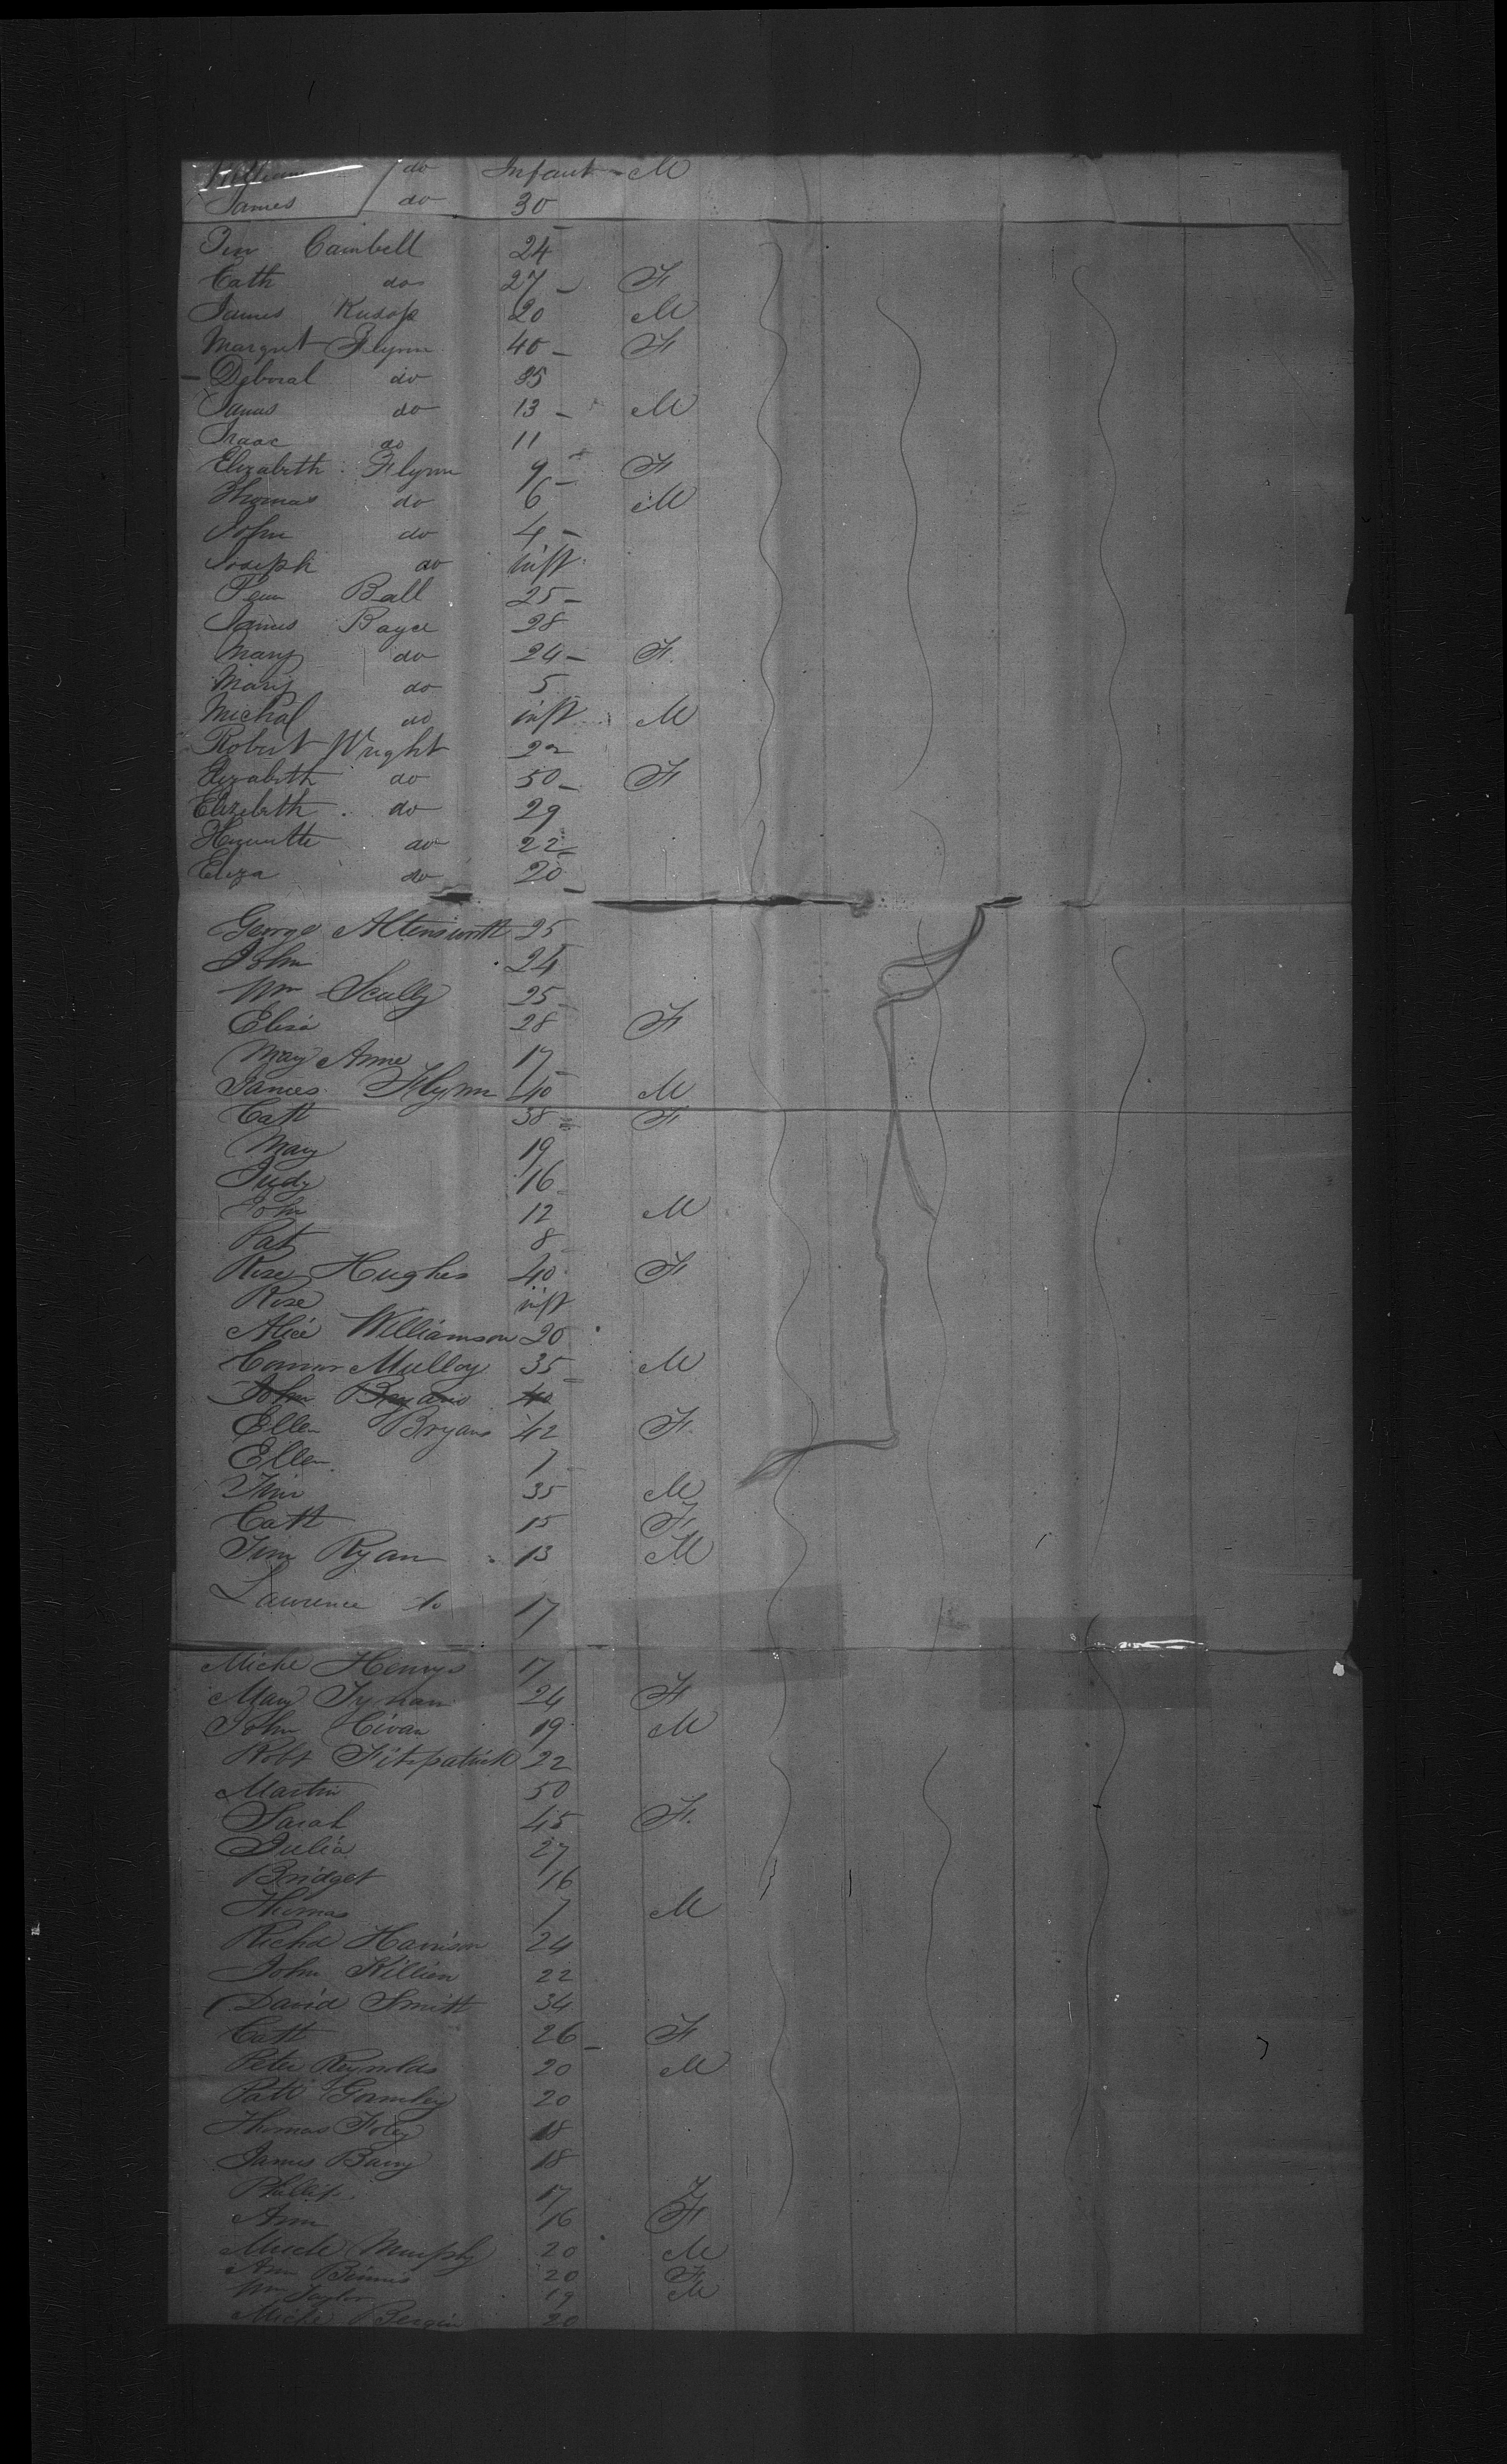 William do Infant - M
James do 30
Cambell 24
Cath do 27 - F
James 20 M
Margret Flynn 40 - F
Deboral do 35
James do 13 - M
Isaac do 11
Elizabeth Flynn 9 - F
Thomas do 6 M
John do 4 -
Joseph do inft
Ball 25 -
James Boyce 28
Mary do 24 - F
Mary do 5
Michal do inft M
Robert Wright 22
Elizabeth do 50 - F
Elizebeth do 29
do 22
Eliza do 20 -
George 25
John 24
Wm Scully 25
Elisa 28 F
May Anne 17
James Flynn 40 M
Cath 38 F
Mary 19
Judy 16
John 12 M
Pat 8
Rose Hughes 40 F
Rose inft
Alice Williamson 20
Connor Mulloy 35 M
John Bryans 40
Ellen Bryans 42 F
Ellen 7
Tim 35 M
Cath 15 F
Tim Ryan 13 M
Lawrence do 17
Michl Henry 17
Mary Tynan 24 F
John 19 M
Robt Fitzpatrick 22
Martin 50
Sarah 45 F
Julia 27
Bridget 16
Thomas 7 M
Richd Harrison 24
John Killien 22
David Smith 34
Cath 26 - F
Peter Reynolds 20 M
Patk Gormley 20
Thomas Foley 18
James Barry 18
Phillip 17
Ann 16 F
Michl Murphy 20 M
Ann 20 F
Wm Taylor 19 M
Michl Bergin 20